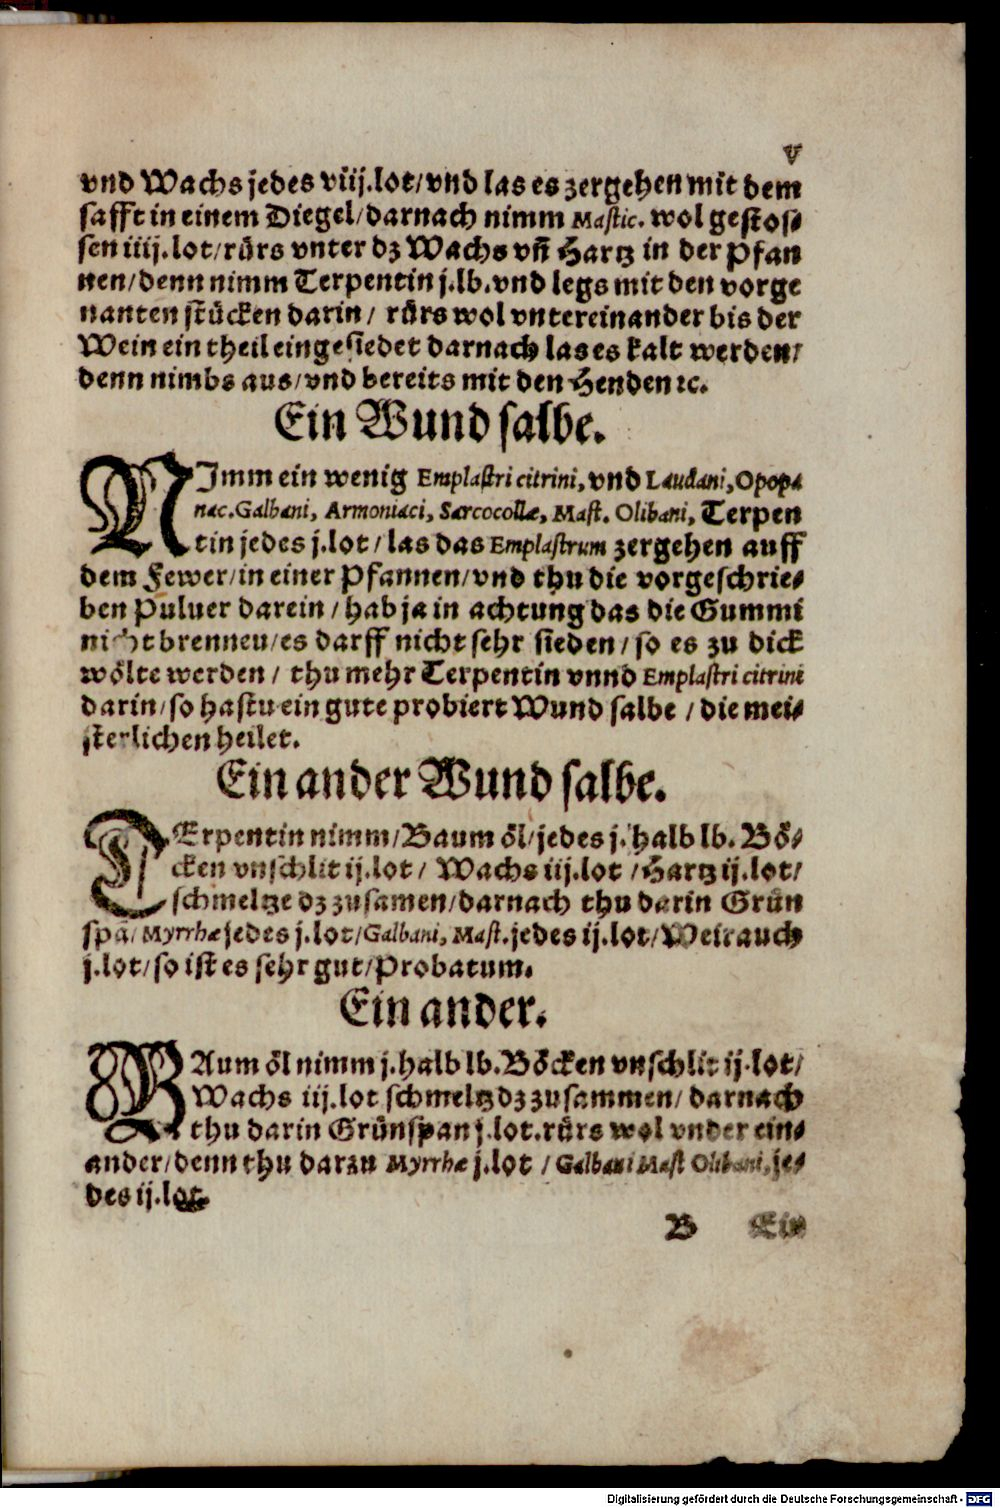 v
vnd Wachs jedes viij.lot/vnd las es zergehen mit dem
safft in einem Diegel/darnach nimm Mastic. wol gestos⸗
sen iiij.lot/rürs vnter dz Wachs vn̄ Hartz in der Pfan
nen/denn nimm Terpentin j.lb.vnd legs mit den vorge
nanten stücken darin/ rürs wol vntereinander bis der
Wein ein theil eingesiedet darnach las es kalt werden/
denn nimbs aus/vnd bereits mit den Henden ꝛc.
Ein Wund salbe.
NImm ein wenig Emplastri citrini, vnd Laudani, Opopa
nac. Galbani, Armoniaci, Sarcocollæ, Mast. Olibani, Terpen
tin jedes j.lot/las das Emplastrum zergehen auff
dem Fewer/in einer Pfannen/vnd thu die vorgeschrie⸗
ben Puluer darein/hab ja in achtung das die Gummi
nicht brennen/es darff nicht sehr sieden/so es zu dick
wölte werden/ thu mehr Terpentin vnnd Emplastri citrini
darin/so hastu ein gute probiert Wund salbe/die mei⸗
sterlichen heilet.
Ein ander Wund salbe.
TErpentin nimm/Baum öl/jedes j.halb lb. Bö⸗
cken vnschlit ij.lot/ Wachs iij.lot/Hartz ij.lot/
schmeltze dz zusamen/darnach thu darin Grün
spā/Myrrhæ jedes j.lot/Galbani, Mast. jedes ij.lot/Weirauch
j.lot/so ist es sehr gut/Probatum.
Ein ander.
BAum öl nimm j.halb lb. Böcken vnschlit ij.lot/
Wachs iij.lot schmeltz dz zusammen/ darnach
thu darin Grünspan j.lot.rürs wol vnder ein⸗
ander/denn thu darzu Myrrhæ j.lot/Galbani Mast Olibani, je⸗
des ij.lot.
B Ein
Digitalisierung gefördert durch die Deutsche Forschungsgemeinschaft - DFG